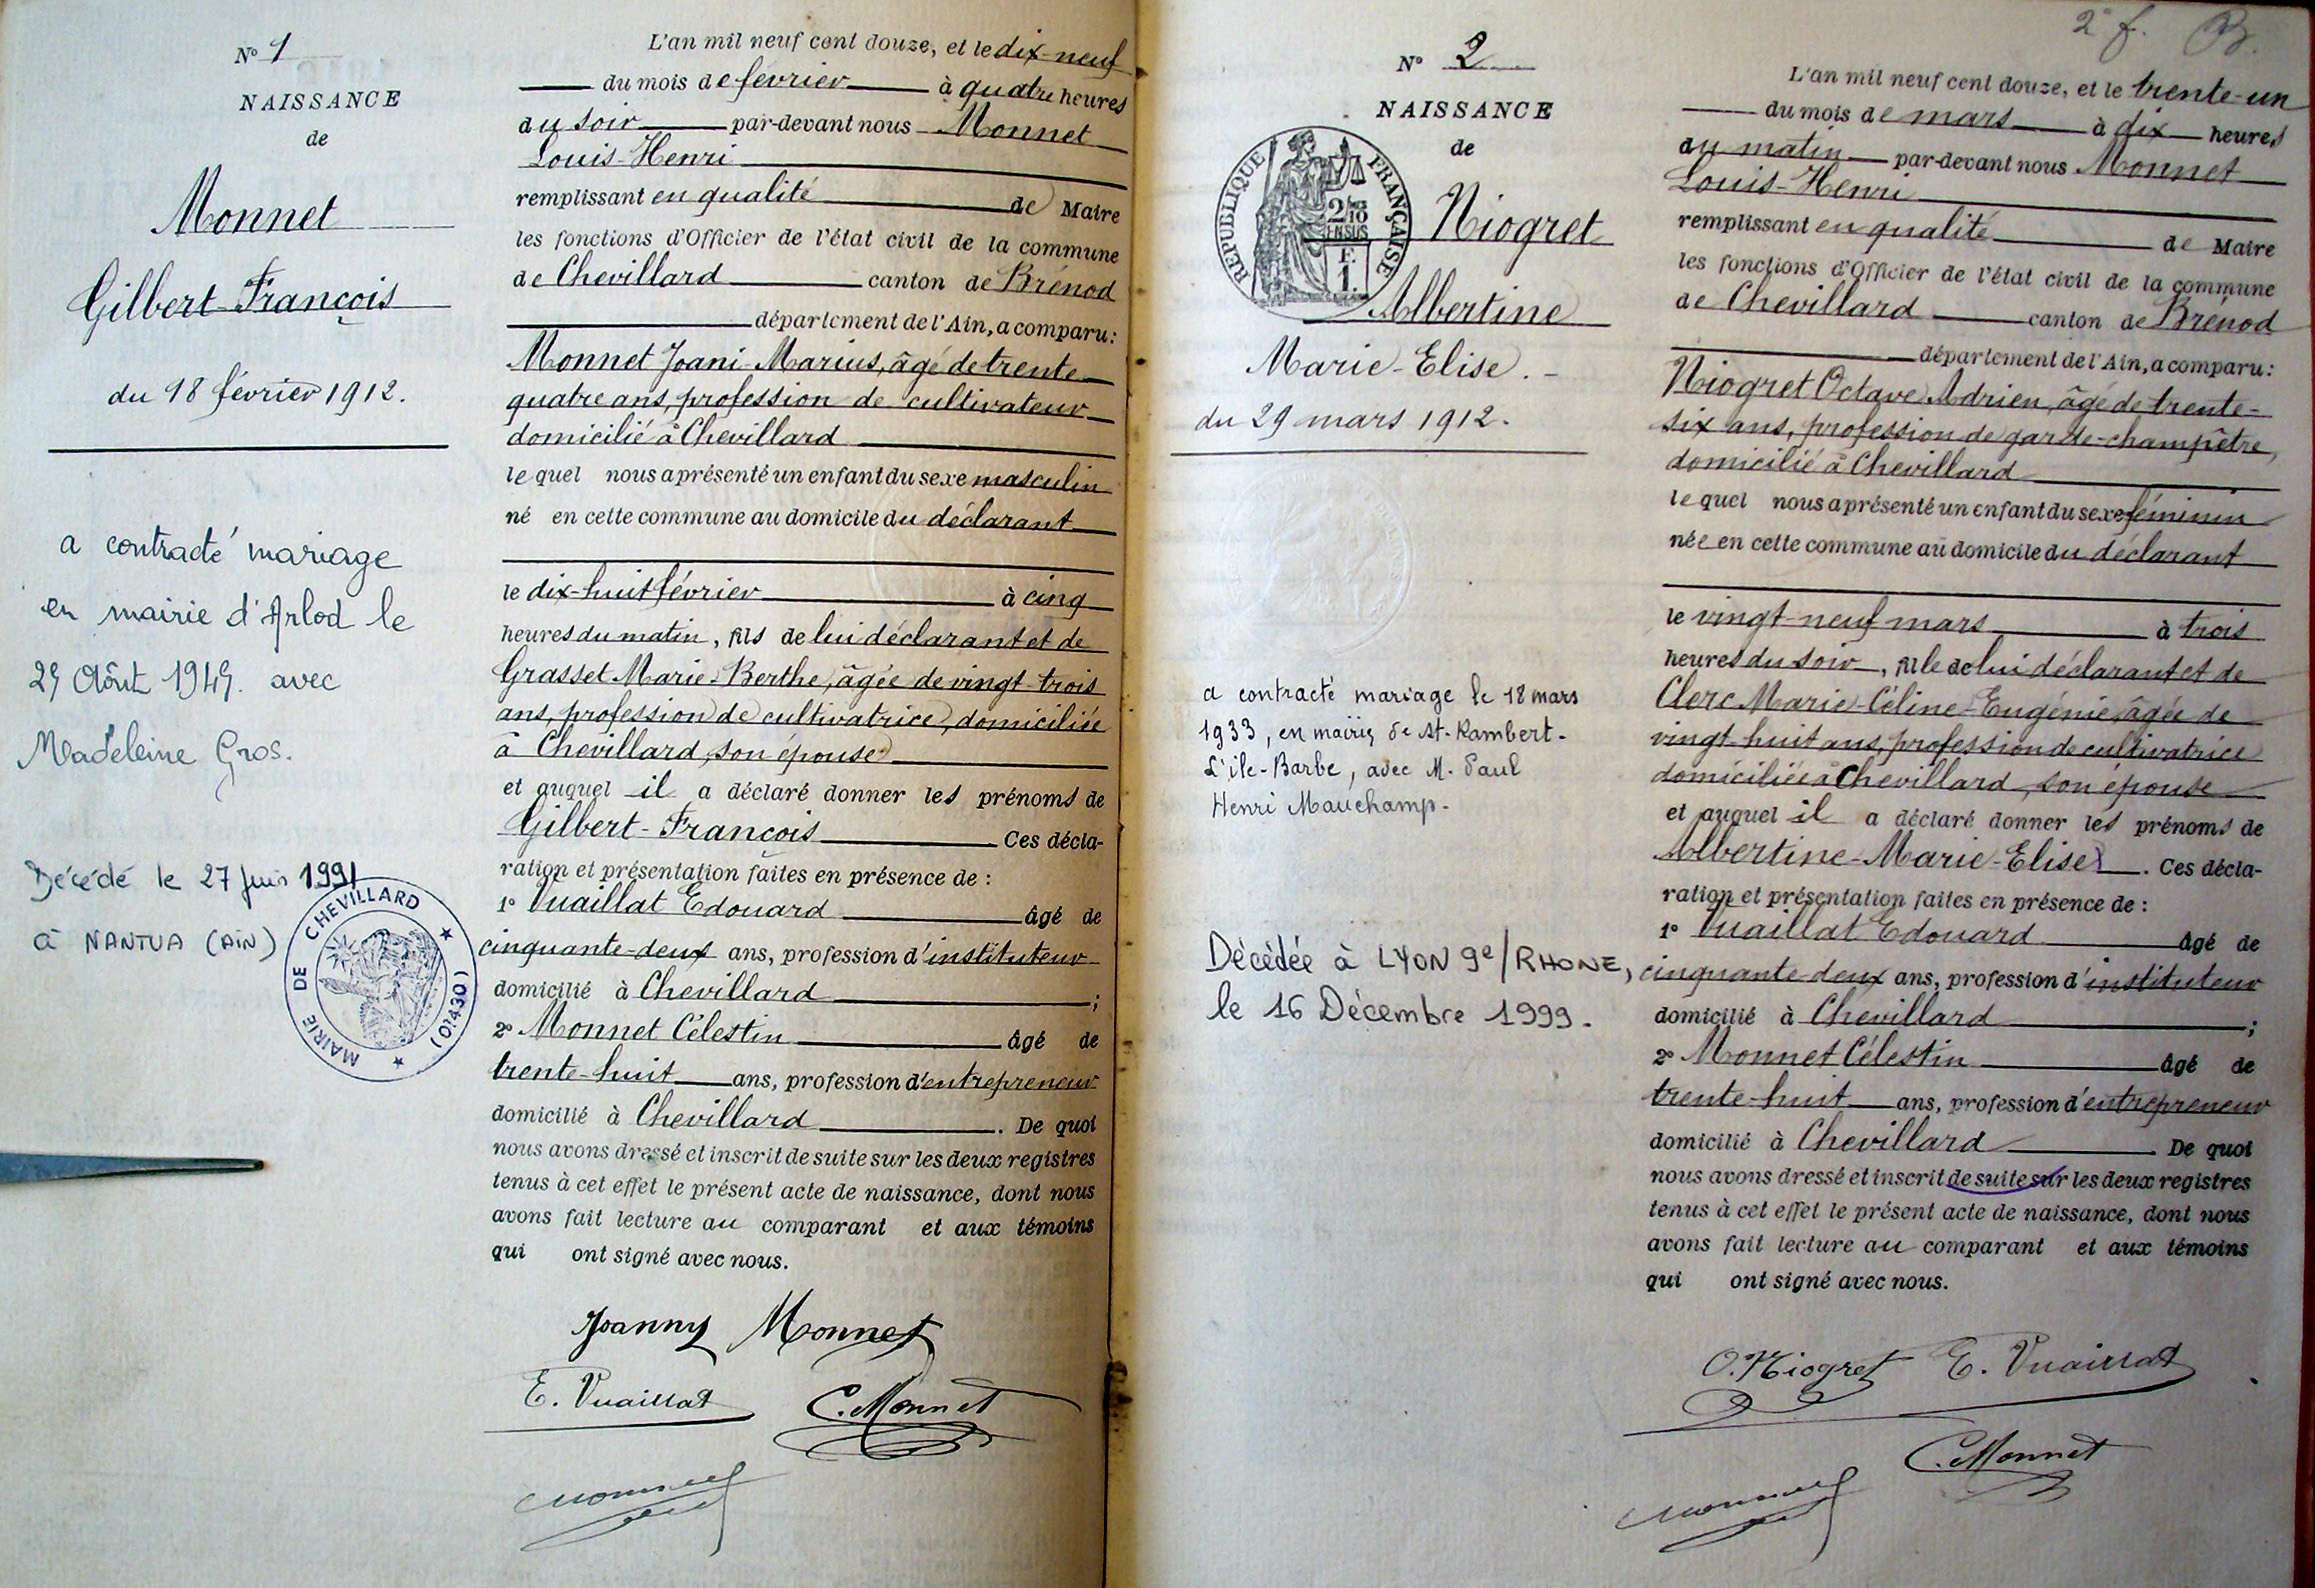 N° 1
NAISSANCE
de
Monnet
Gilbert-François
du 18 février 1912.
a contracté mariage
en mairie d'Arlod le
Août avec
Madeleine Gros.
Décédé le 27 Juin 1991
à NANTUA (AIN)
MAIRIE DE CHEVILLARD (01430)
L'an mil neuf cent douze, et le dix-neuf
du mois de février à quatre heures
du soir par-devant nous Monnet
Louis-Henri
remplissant en qualité de Maire
les fonctions d'Officier de l'état civil de la commune
de Chevillard canton de Brénod
département de l'Ain, a comparu:
Monnet Joani-Marius, âgé de trente-
quatre ans, profession de cultivateur
domicilié à Chevillard
lequel nous a présenté un enfant du sexe masculin
né en cette commune au domicile du déclarant
le dix-huit février à cinq
heures du matin, fils de lui déclarant et de
Grasset Marie-Berthe, âgée de vingt-trois
ans, profession de cultivatrice, domiciliée
à Chevillard, son épouse
et auquel il a déclaré donner les prénoms de
Gilbert-François Ces décla-
ration et présentation faites en présence de :
1° Vuaillat Edouard âgé de
cinquante-deux ans, profession d'instituteur
domicilié à Chevillard ;
2° Monnet Célestin âgé de
trente-huit ans, profession d'entrepreneur
domicilié à Chevillard . De quoi
nous avons dressé et inscrit de suite sur les deux registres
tenus à cet effet le présent acte de naissance, dont nous
avons fait lecture au comparant et aux témoins
qui ont signé avec nous.
Joanny Monnet
E. Vuaillat C. Monnet
Monnet
2e f.
N° 2
NAISSANCE
de
REPUBLIQUE FRANÇAISE
2/10
EN SUS
F.
1.
Niogret
Albertine
Marie-Elise.-
du 29 mars 1912.
a contracté mariage le 18 mars
1933, en mairie de St-Rambert-
L'île-Barbe, avec M. Paul
Henri Mauchamp-
Décédée à LYON 9e/RHONE,
le 16 Décembre 1999.
L'an mil neuf cent douze, et le trente-un
du mois de mars à dix heures
du matin par-devant nous Monnet
Louis-Henri
remplissant en qualité de Maire
les fonctions d'Officier de l'état civil de la commune
de Chevillard canton de Brénod
département de l'Ain, a comparu:
Niogret Octave Adrien, âgé de trente-
six ans, profession de garde-champêtre,
domicilié à Chevillard
lequel nous a présenté un enfant du sexe féminin
née en cette commune au domicile du déclarant
le vingt-neuf mars à trois
heures du soir, fille de lui déclarant et de
Clerc Marie-Céline-Eugénie, âgée de
vingt-huit ans, profession de cultivatrice
domiciliée à Chevillard, son épouse
et auquel il a déclaré donner les prénoms de
Albertine-Marie-Elise . Ces décla-
ration et présentation faites en présence de :
1° Vuaillat Edouard âgé de
cinquante-deux ans, profession d'instituteur
domicilié à Chevillard ;
2° Monnet Célestin âgé de
trente-huit ans, profession d'entrepreneur
domicilié à Chevillard . De quoi
nous avons dressé et inscrit de suite sur les deux registres
tenus à cet effet le présent acte de naissance, dont nous
avons fait lecture au comparant et aux témoins
qui ont signé avec nous.
O. Niogret E. Vuaillat
C. Monnet
Monnet